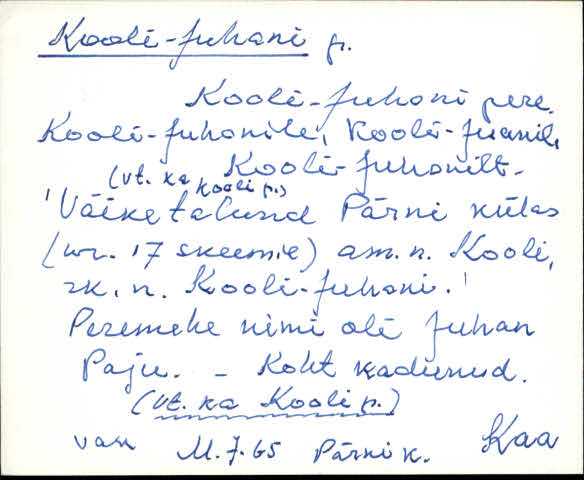 Kooli-Juhani p.
Kooli-Juhani pere.
Kooli-Juhanile, Kooli-Juanil,
Kooli-Juhanilt.
(vt. ka Kooli p.)
'Väiketalund Pärni külas
(nr. 17 skeemie) am. n. Kooli,
rk. n. Kooli-Juhani.'
Peremehe nimi oli Juhan
Paju. – Koht kadunud.
(vt. ka Kooli p.)
van M. 7. 65 Pärni k. Kaa